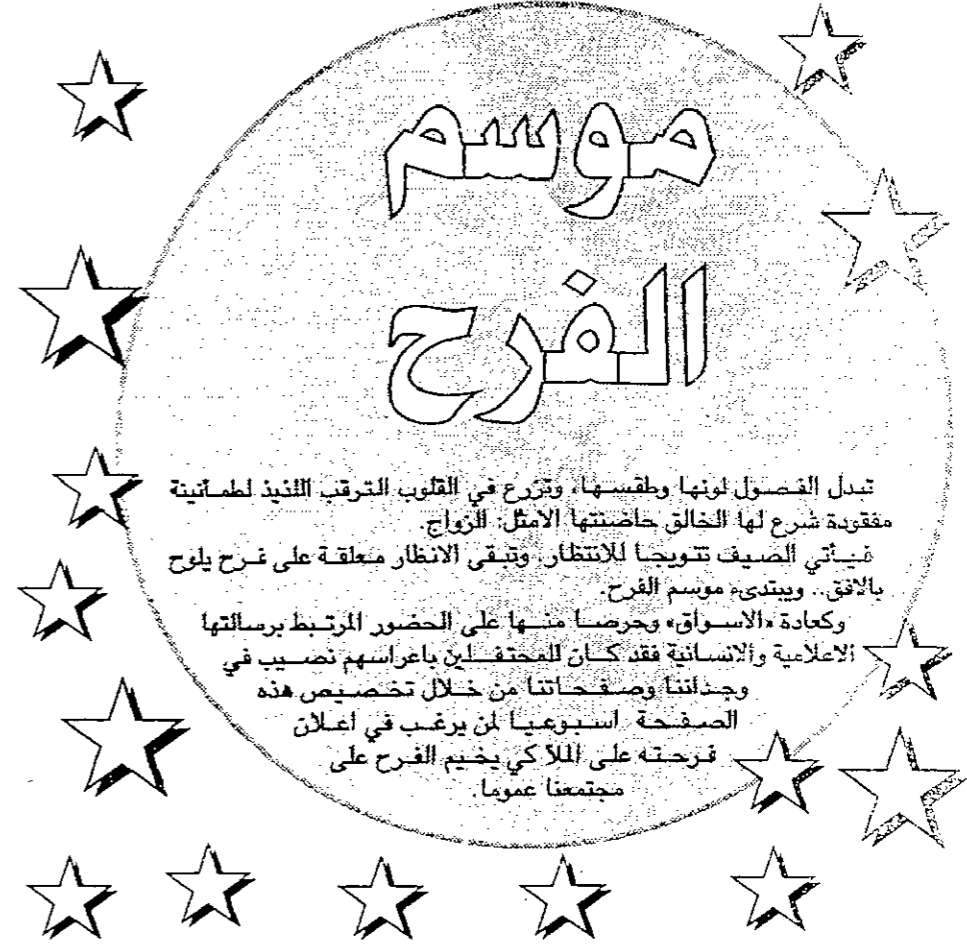 موسم
الفرح
تبدل الفصول لونها وطقسها، وتزرع في القلوب الترقب اللذيذ لطمأنينة
مفقودة شرع لها الخالق حاضنتها الامثل: الزواج.
فيأتي الصيف تتويجا للانتظار، وتبقى الانظار معلقة على فرح يلوح
بالافق.. ويبتدىء موسم الفرح.
وكعادة «الاسواق» وحرصا منها على الحضور المرتبط برسالتها
الاعلامية والانسانية فقد كان للمحتفلين باعراسهم نصيب في
وجداننا وصفحاتنا من خلال تخصيص هذه
الصفحة اسبوعيا لمن يرغب في اعلان
فرحته على الملا كي يخيم الفرح على
مجتمعنا عموما.